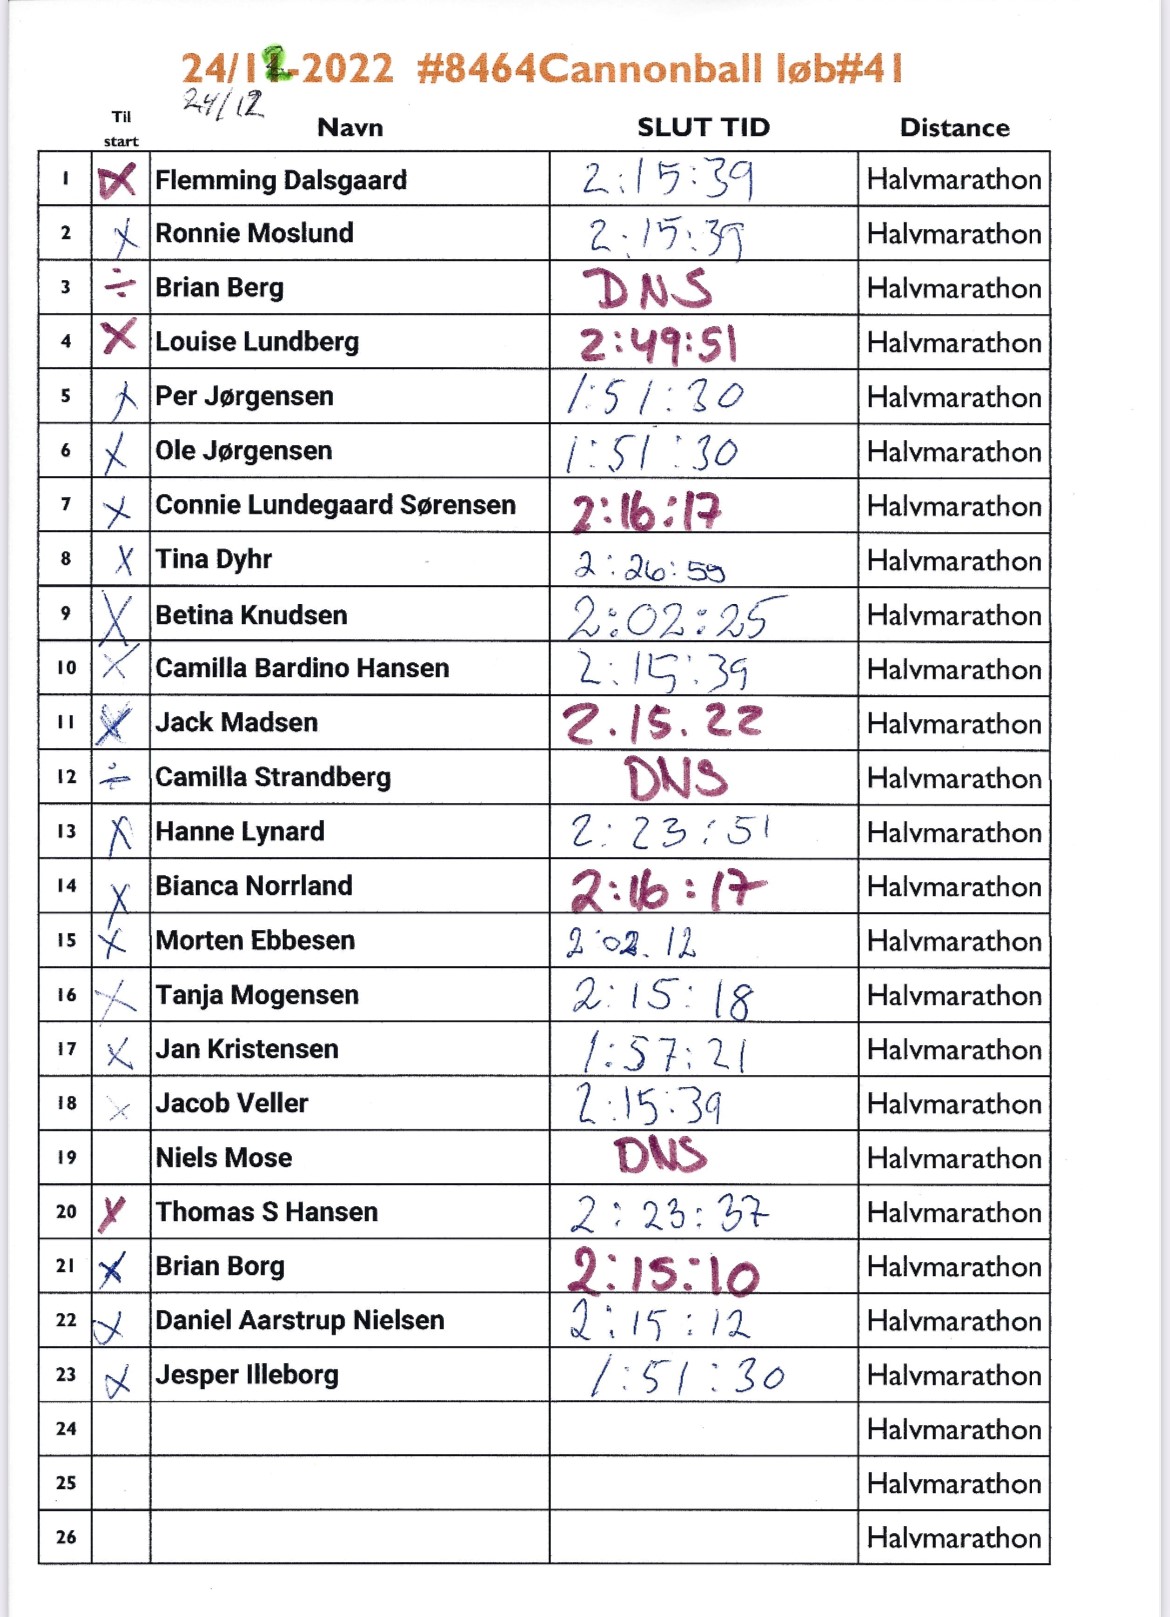 24/12-2022 #8464Cannonball løb#41
24/12
Til start Navn SLUT TID Distance
1 X Flemming Dalsgaard 2:15:39 Halvmarathon
2 X Ronnie Moslund 2:15:39 Halvmarathon
3 ÷ Brian Berg DNS Halvmarathon
4 X Louise Lundberg 2:49:51 Halvmarathon
5 X Per Jørgensen 1:51:30 Halvmarathon
6 X Ole Jørgensen 1:51:30 Halvmarathon
7 X Connie Lundegaard Sørensen 2:16:17 Halvmarathon
8 X Tina Dyhr 2:26:59 Halvmarathon
9 X Betina Knudsen 2:02:25 Halvmarathon
10 X Camilla Bardino Hansen 2:15:39 Halvmarathon
11 X Jack Madsen 2.15.22 Halvmarathon
12 ÷ Camilla Strandberg DNS Halvmarathon
13 X Hanne Lynard 2:23:51 Halvmarathon
14 X Bianca Norrland 2:16:17 Halvmarathon
15 X Morten Ebbesen 2:02.12 Halvmarathon
16 X Tanja Mogensen 2:15:18 Halvmarathon
17 X Jan Kristensen 1:57:21 Halvmarathon
18 X Jacob Veller 2:15:39 Halvmarathon
19 Niels Mose DNS Halvmarathon
20 X Thomas S Hansen 2:23:37 Halvmarathon
21 X Brian Borg 2:15:10 Halvmarathon
22 X Daniel Aarstrup Nielsen 2:15:12 Halvmarathon
23 X Jesper Illeborg 1:51:30 Halvmarathon
24 Halvmarathon
25 Halvmarathon
26 Halvmarathon